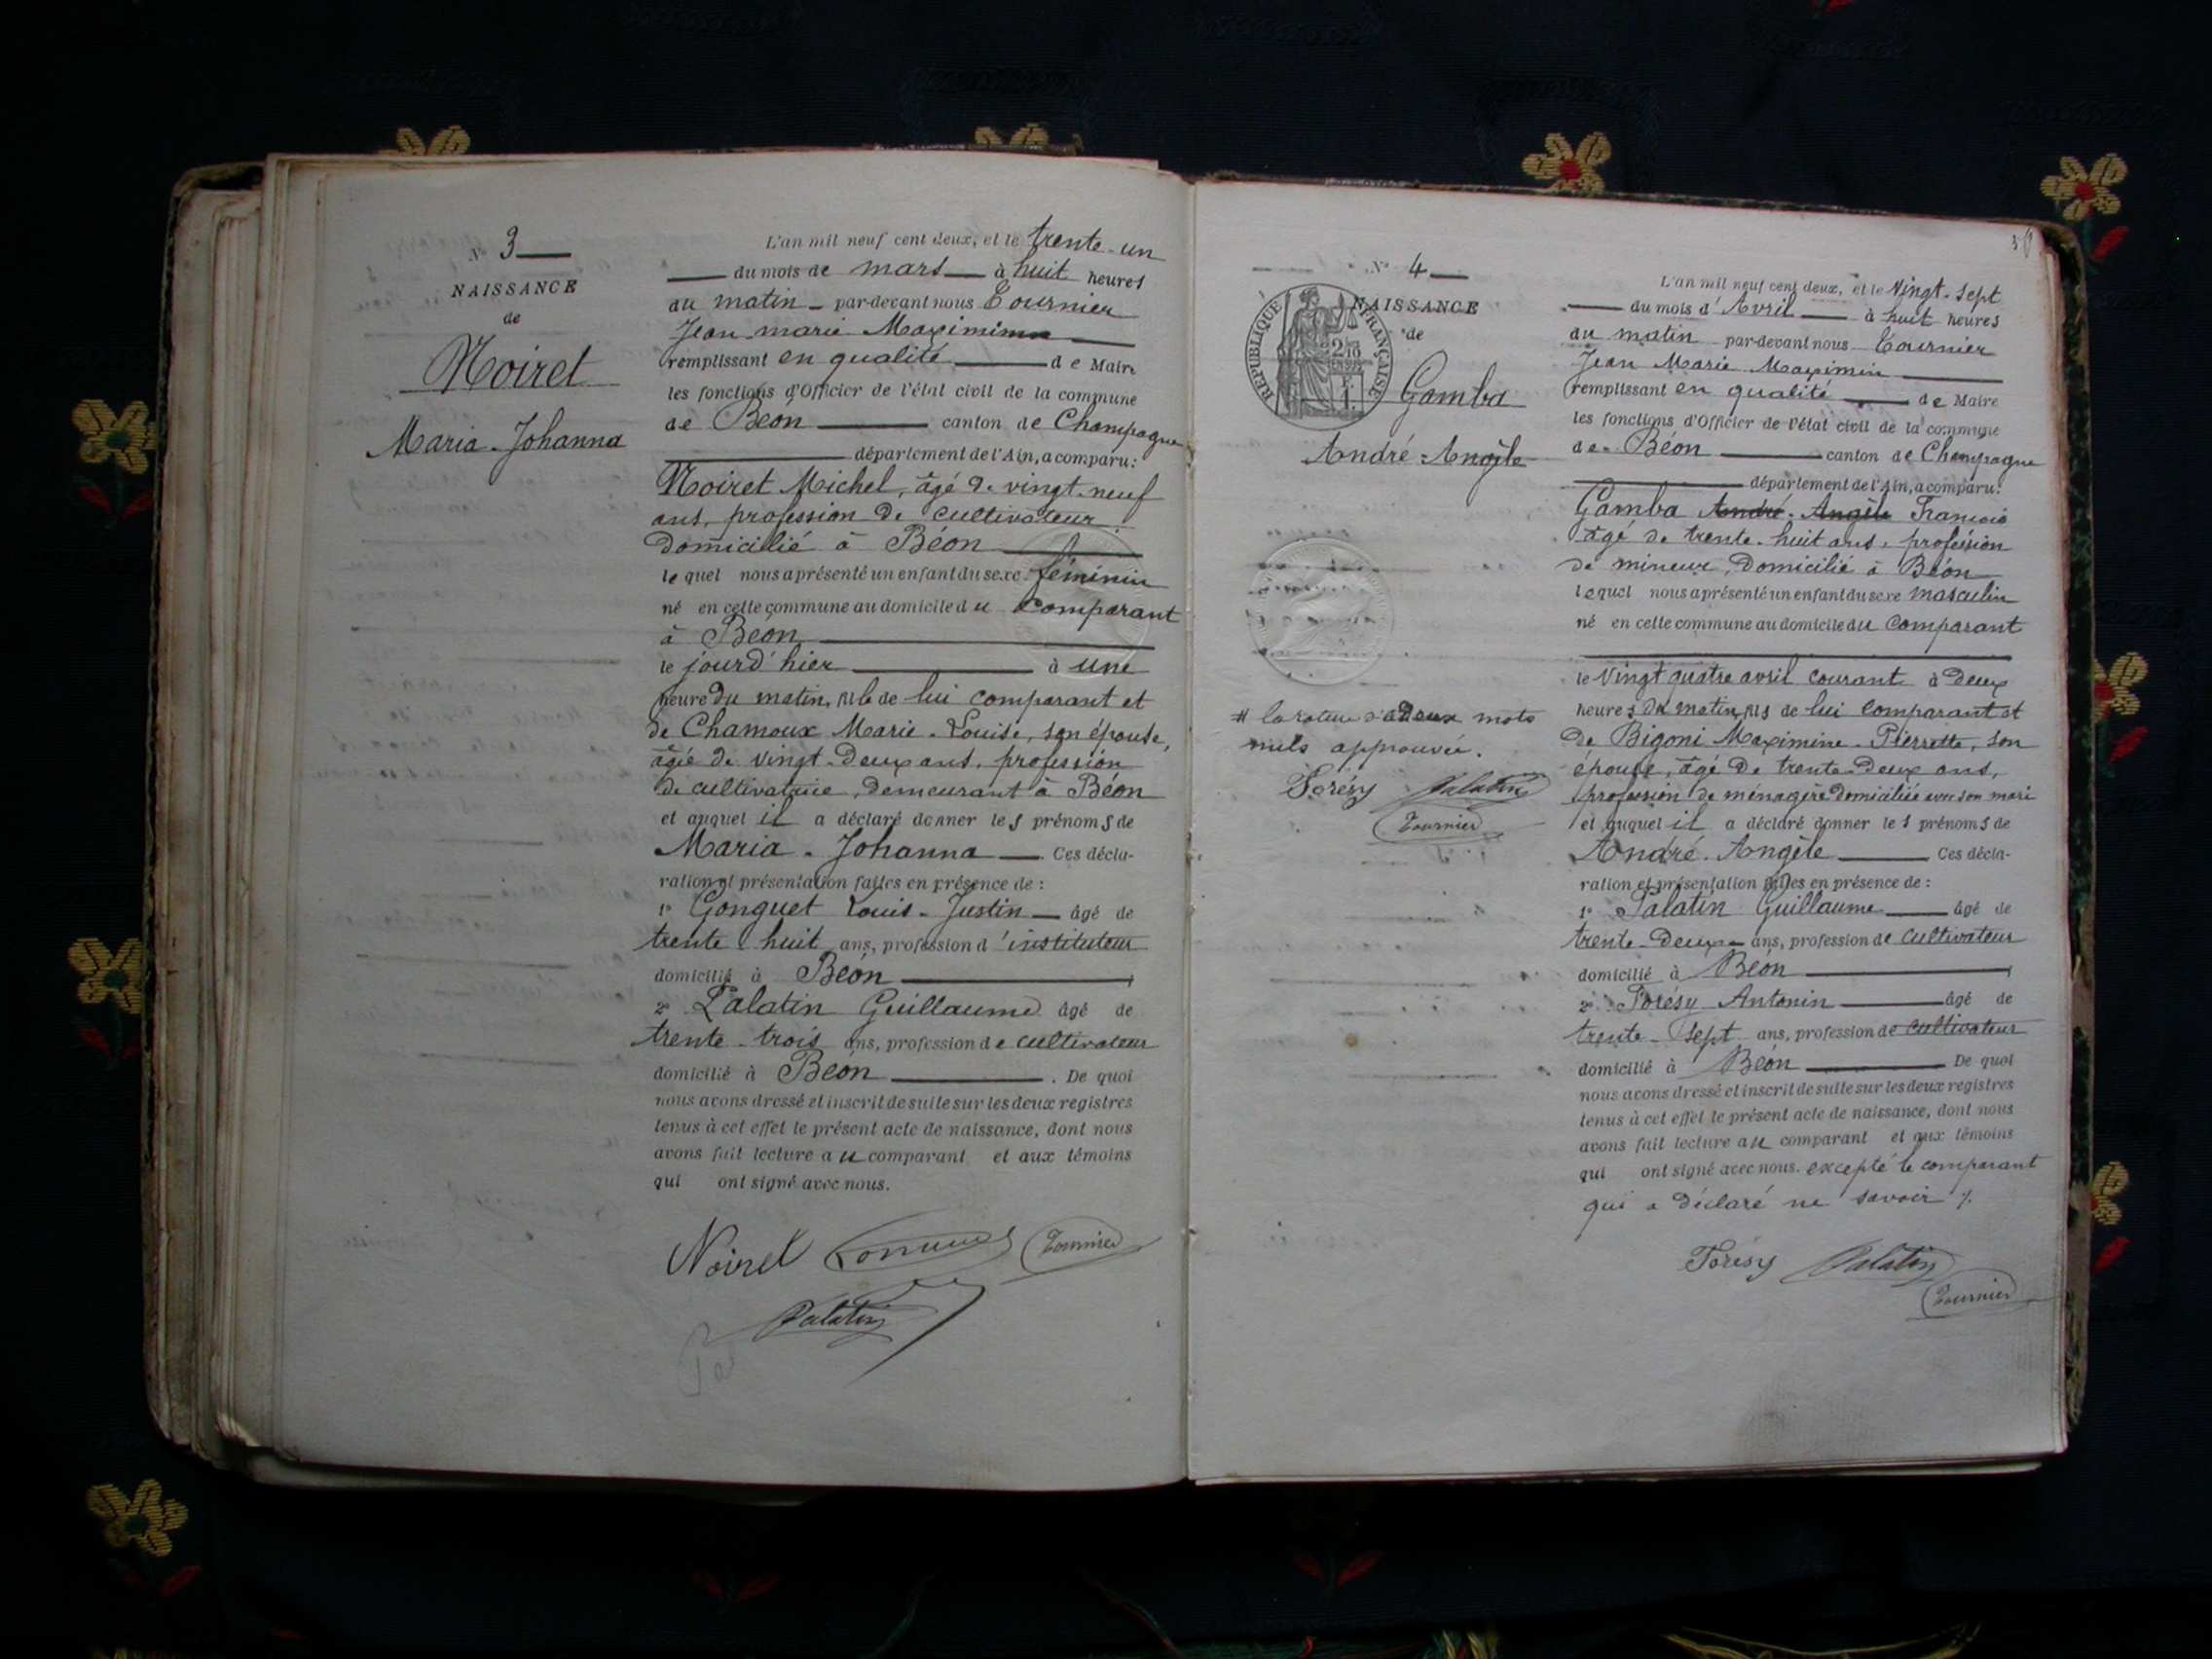 N° 3
NAISSANCE
de
Noiret
Maria-Johanna
L'an mil neuf cent deux, et le trente-un
du mois de mars à huit heures
du matin par-devant nous Tournier
Jean-marie Maximin
remplissant en qualité de Maire
les fonctions d'Officier de l'état civil de la commune
de Béon canton de Champagne
département de l'Ain, a comparu:
Noiret Michel, âgé de vingt-neuf
ans, profession de cultivateur
domicilié à Béon
lequel nous a présenté un enfant du sexe féminin
né en cette commune au domicile du comparant
à Béon
le jourd'hier à une
heure du matin, fille de lui comparant et
de Chamoux Marie-Louise, son épouse,
âgée de vingt-deux ans, profession
de cultivatrice, demeurant à Béon
et auquel il a déclaré donner les prénoms de
Maria-Johanna Ces décla-
ration et présentation faites en présence de :
1° Gonguet Louis-Justin âgé de
trente huit ans, profession d'instituteur
domicilié à Béon
2° Palatin Guillaume âgé de
trente-trois ans, profession de cultivateur
domicilié à Béon . De quoi
nous avons dressé et inscrit de suite sur les deux registres
tenus à cet effet le présent acte de naissance, dont nous
avons fait lecture au comparant et aux témoins
qui ont signé avec nous.
Noirel Tournier
Palatin
N° 4
RÉPUBLIQUE FRANÇAISE
NAISSANCE
de
Gamba
André-Angèle
deux mots
nuls approuvée.
Forésy Palatin
Tournier
L'an mil neuf cent deux, et le vingt-sept
du mois d'Avril à huit heures
du matin par-devant nous Tournier
Jean Marie Maximin
remplissant en qualité de Maire
les fonctions d'Officier de l'état civil de la commune
de Béon canton de Champagne
département de l'Ain, a comparu:
Gamba André-Angèle François
âgé de trente-huit ans, profession
de mineur, domicilié à Béon
lequel nous a présenté un enfant du sexe masculin
né en cette commune au domicile du comparant
le vingt quatre avril courant à deux
heures du matin, fils de lui comparant et
de Bigoni Maximine-Pierrette, son
épouse, âgé de trente-deux ans,
profession de ménagère domiciliée avec son mari
et auquel il a déclaré donner les prénoms de
André-Angèle Ces décla-
ration et présentation faites en présence de :
1° Palatin Guillaume âgé de
trente-deux ans, profession de cultivateur
domicilié à Béon
2° Forésy Antonin âgé de
trente-sept ans, profession de cultivateur
domicilié à Béon De quoi
nous avons dressé et inscrit de suite sur les deux registres
tenus à cet effet le présent acte de naissance, dont nous
avons fait lecture au comparant et aux témoins
qui ont signé avec nous. excepté le comparant
qui a déclaré ne savoir
Forésy Palatin
Tournier